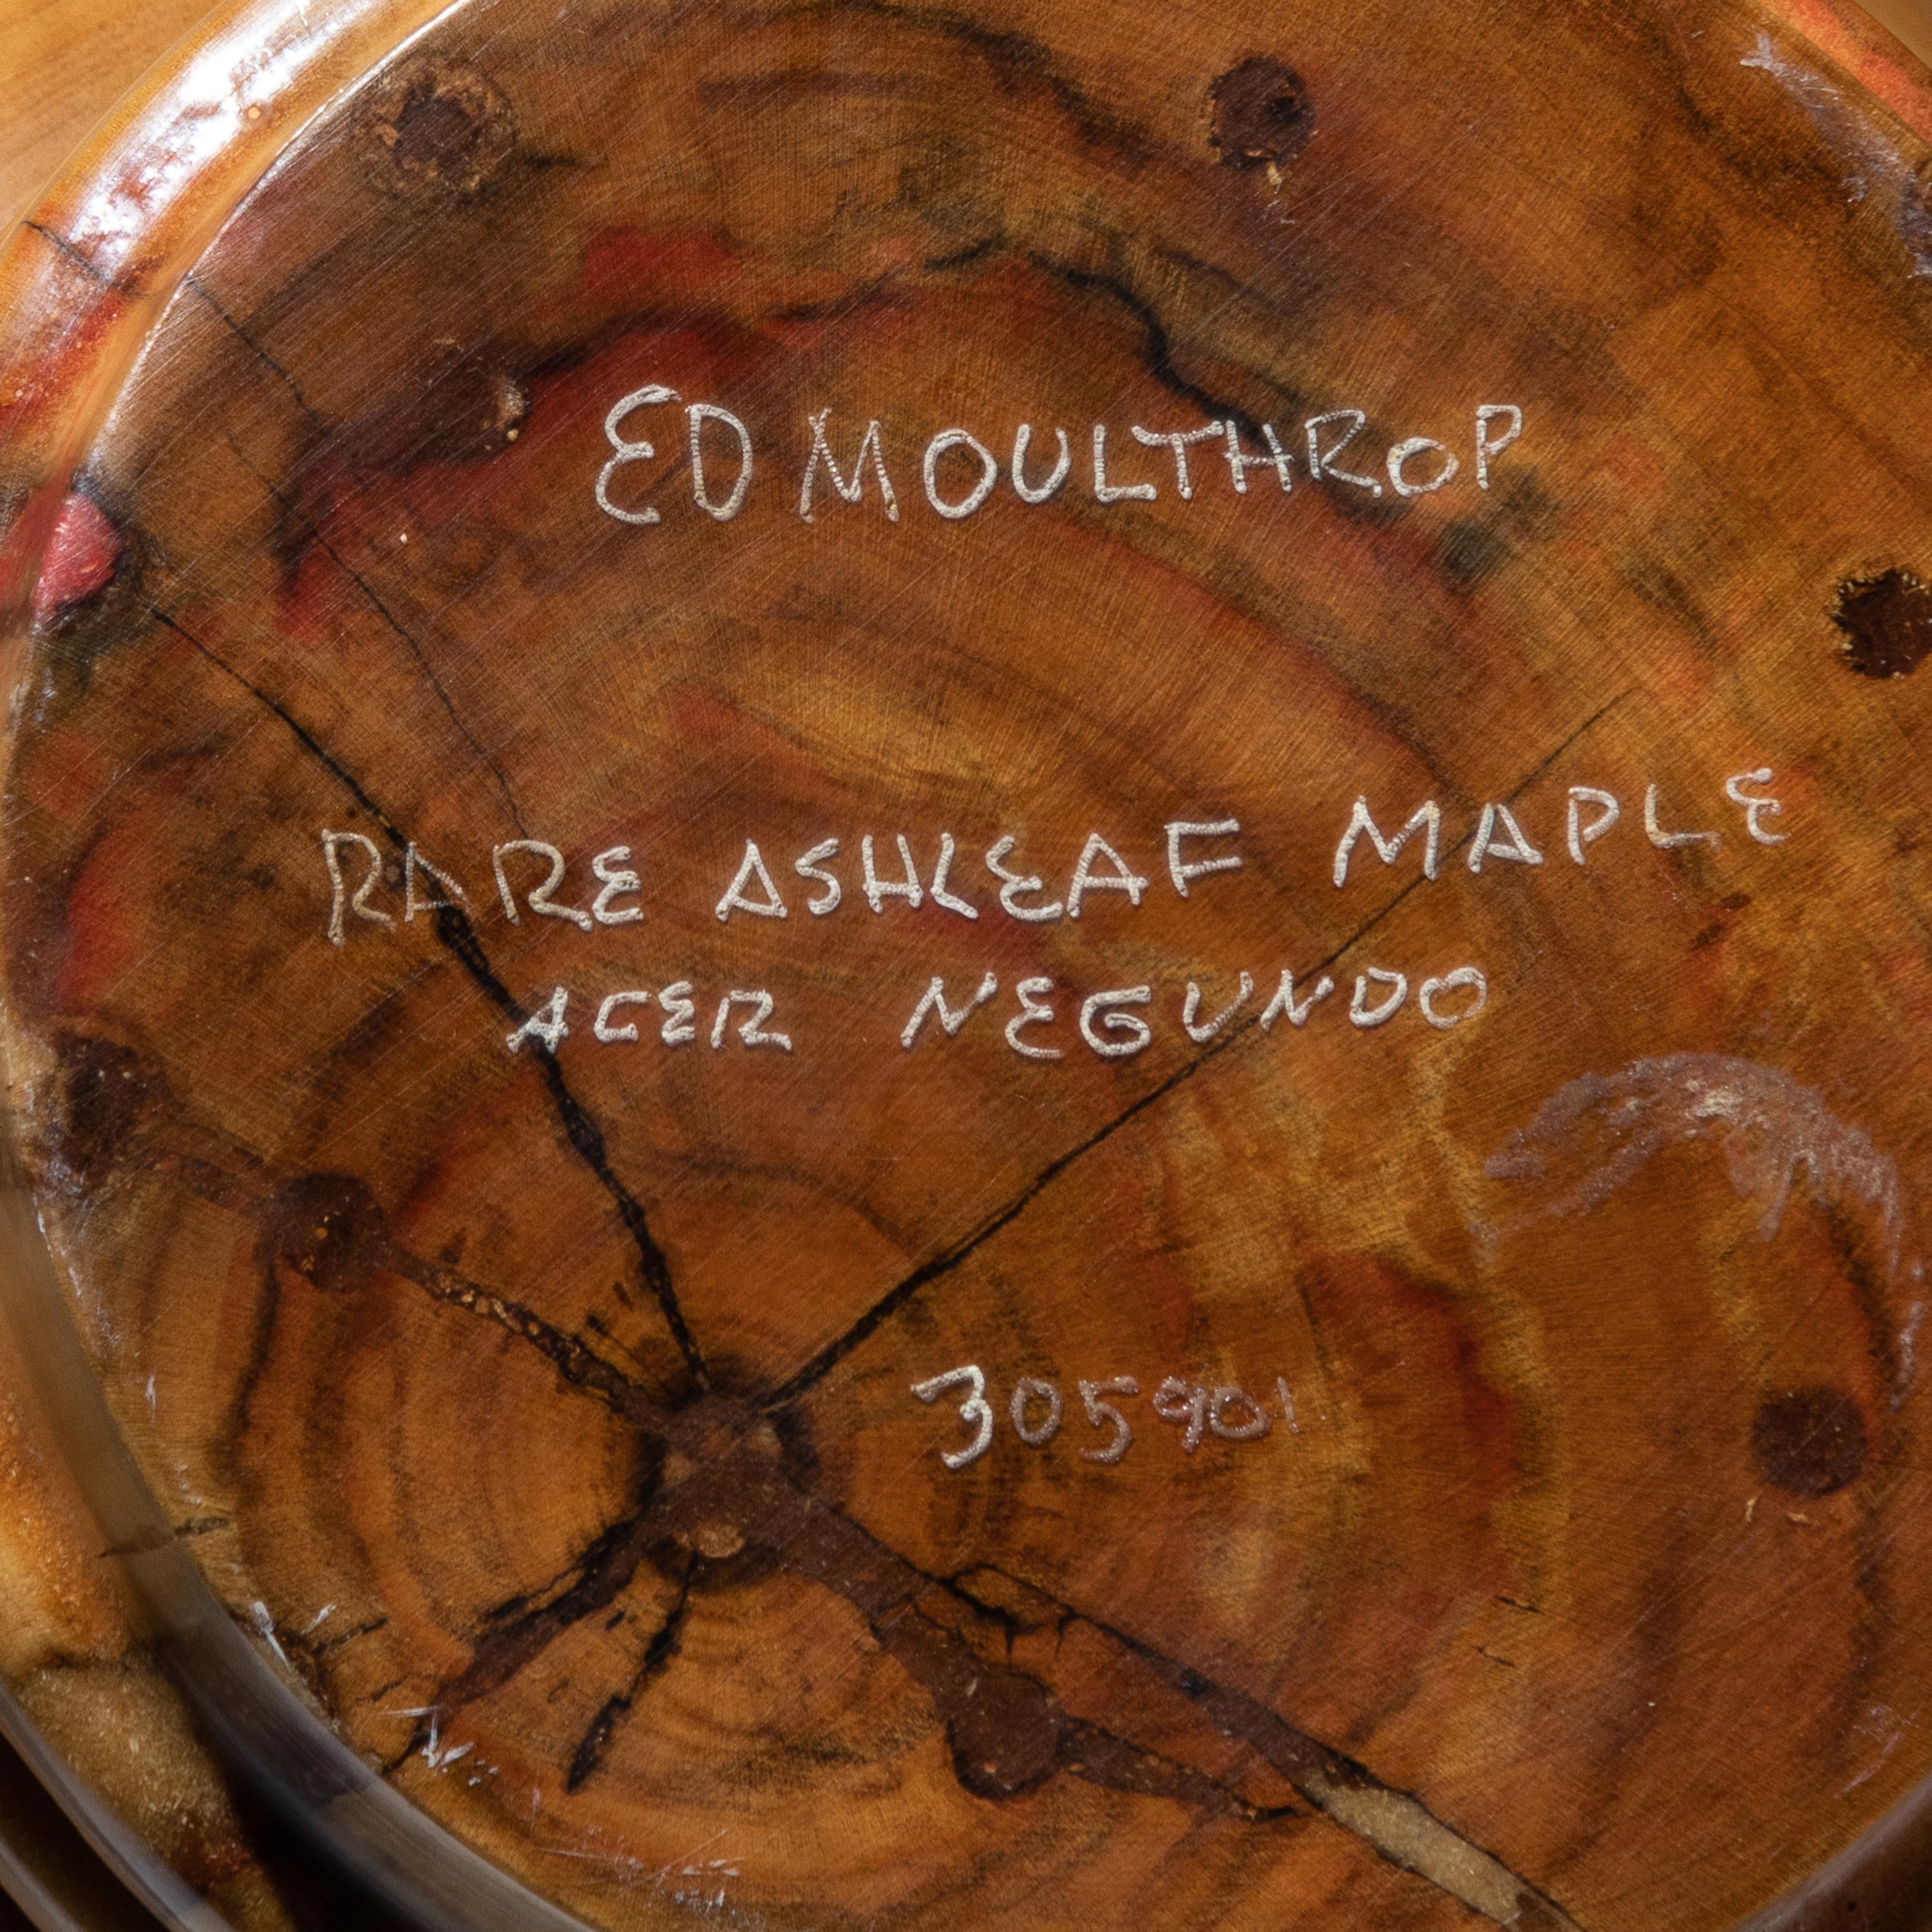 ED MOULTHROP
RARE ASHLEAF MAPLE
ACER NEGUNDO
305901